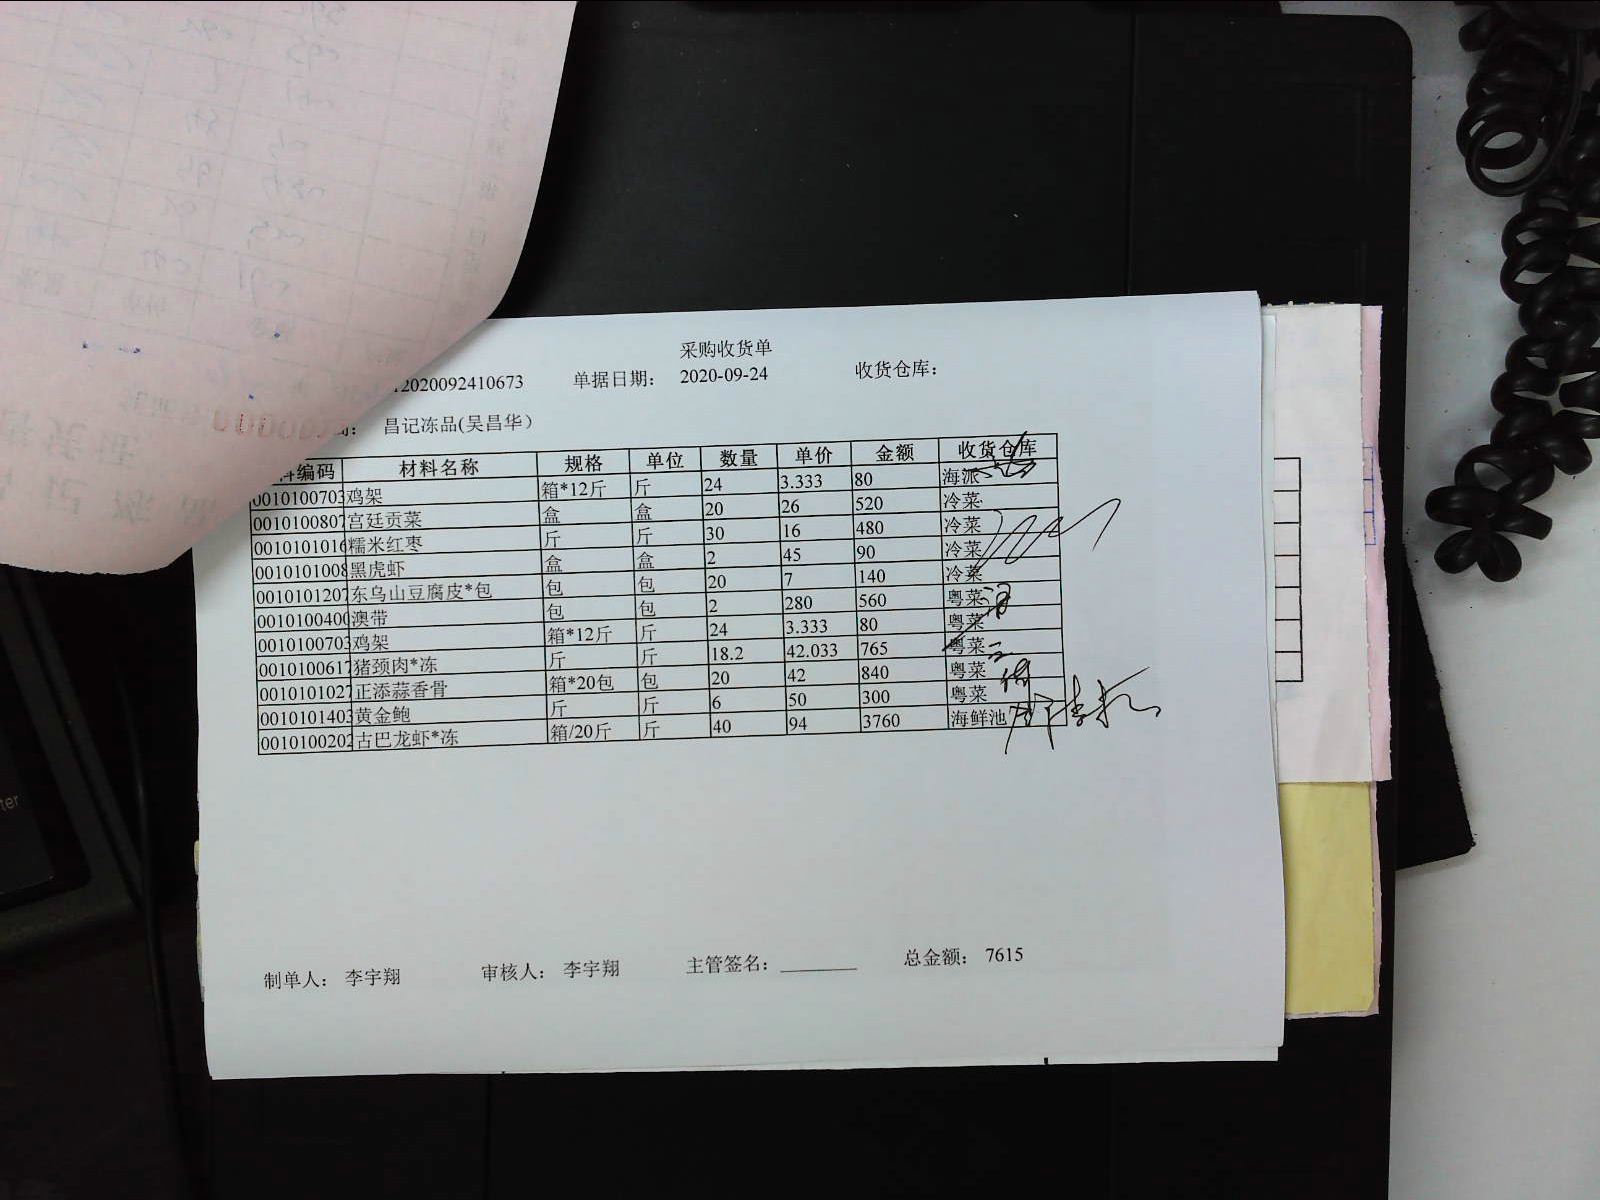 采购收货单
12020092410673 单据日期： 2020-09-24 收货仓库：
昌记冻品(吴昌华）
编码 材料名称 规格 单位 数量 单价 金额 收货仓库
0010100703 鸡架 箱*12斤 斤 24 3.333 80 海派
0010100807 宫廷贡菜 盒 盒 20 26 520 冷菜
0010101016 糯米红枣 斤 斤 30 16 480 冷菜
0010101008 黑虎虾 盒 盒 2 45 90 冷菜
0010101207 东乌山豆腐皮*包 包 包 20 7 140 冷菜
0010100400 澳带 包 包 2 280 560 粤菜
0010100703 鸡架 箱*12斤 斤 24 3.333 80 粤菜
0010100617 猪颈肉*冻 斤 斤 18.2 42.033 765 粤菜
0010101027 正添蒜香骨 箱*20包 包 20 42 840 粤菜
0010101403 黄金鲍 斤 斤 6 50 300 粤菜
0010100202 古巴龙虾*冻 箱/20斤 斤 40 94 3760 海鲜池
制单人： 李宇翔 审核人： 李宇翔 主管签名： 总金额： 7615